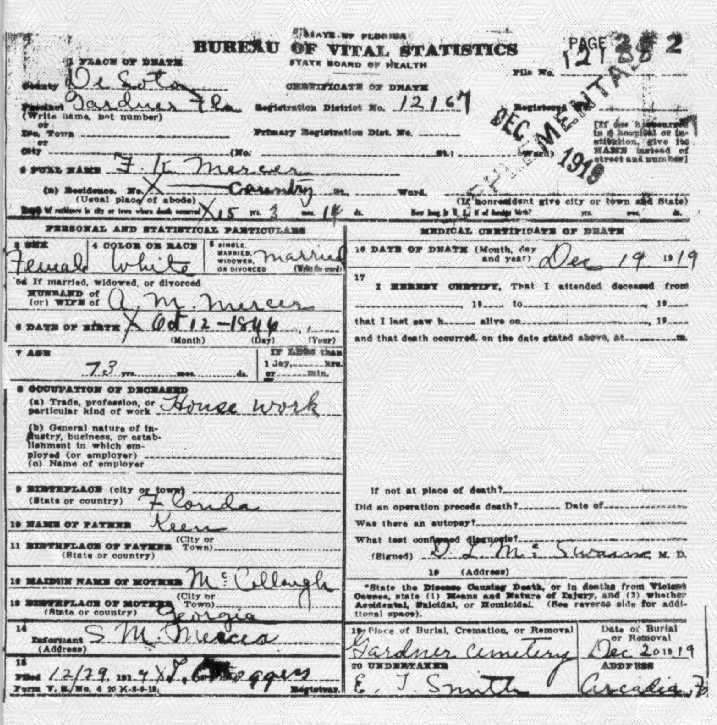 STATE OF FLORIDA
BUREAU OF VITAL STATISTICS
STATE BOARD OF HEALTH
PAGE
1 PLACE OF DEATH
County De Soto
CERTIFICATE OF DEATH
File No.
Precinct Gardner Fla
Registration District No. 12167
Registered No.
(Write name, not number)
or
Inc. Town
Primary Registration Dist. No.
or
City (No. St.; Ward)
[If death occurred in a hospital or institution, give its NAME instead of street and number]
SUPPLEMENTAL
DEC 1919
2 FULL NAME F K Mercer
(a) Residence. No. X Country St. Ward.
(Usual place of abode)
(If nonresident give city or town and State)
Length of residence in city or town where death occurred X 15 yrs. 3 mos. 14 ds.
How long in U. S., if of foreign birth?
PERSONAL AND STATISTICAL PARTICULARS
3 SEX Female
4 COLOR OR RACE White
5 SINGLE, MARRIED, WIDOWED, OR DIVORCED (Write the word) Married
5a If married, widowed, or divorced
HUSBAND of
(or) WIFE of A. M. Mercer
6 DATE OF BIRTH X Oct 12 - 1846
(Month) (Day) (Year)
7 AGE 73 yrs. mos. ds.
IF LESS than
1 day, hrs.
or min.
8 OCCUPATION OF DECEASED
(a) Trade, profession, or
particular kind of work House work
(b) General nature of in-
dustry, business, or estab-
lishment in which em-
ployed (or employer)
(c) Name of employer
9 BIRTHPLACE (city or town)
(State or country) Florida
10 NAME OF FATHER Keen
11 BIRTHPLACE OF FATHER (City or Town)
(State or country)
12 MAIDEN NAME OF MOTHER McCollough
13 BIRTHPLACE OF MOTHER (City or Town)
(State or country) Georgia
14
Informant S. M. Mercer
(Address)
15
Filed 12/29, 191
Registrar.
Form V. S. No. 4
MEDICAL CERTIFICATE OF DEATH
16 DATE OF DEATH (Month, day
and year) Dec 19 1919
17
I HEREBY CERTIFY, That I attended deceased from
, 19 to , 19
that I last saw h alive on , 19
and that death occurred, on the date stated above, at m.
If not at place of death?
Did an operation precede death? Date of
Was there an autopsy?
What test confirmed diagnosis?
(Signed) D. L. McSwain M. D.
19 (Address)
*State the Disease Causing Death, or in deaths from Violent
Causes, state (1) Means and Nature of Injury, and (2) whether
Accidental, Suicidal, or Homicidal. (See reverse side for addi-
tional space).
19 Place of Burial, Cremation, or Removal
Gardner Cemetery
Date of Burial
or Removal
Dec 20 1919
20 UNDERTAKER
E. T. Smith
ADDRESS
Arcadia, Fla